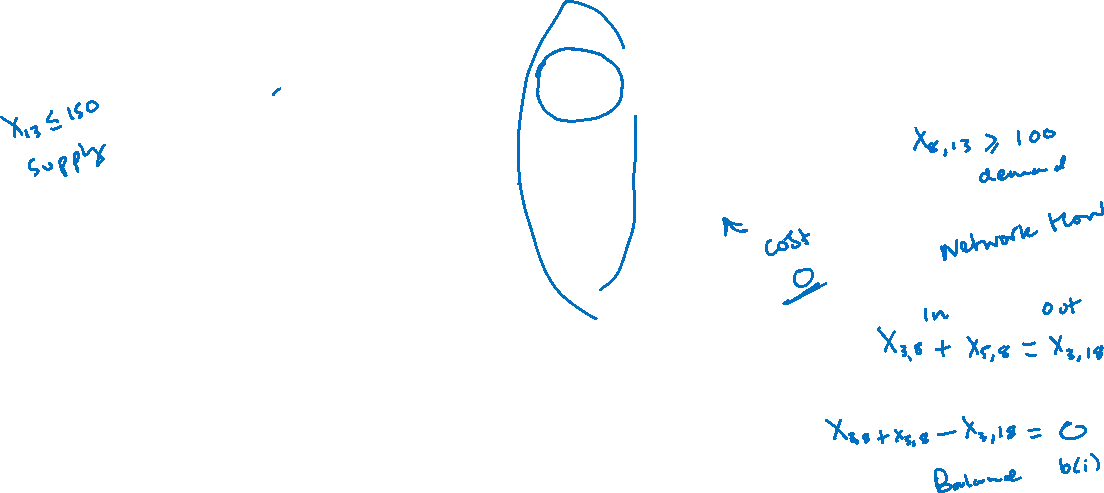 X₁₃ ≤ 150
supply
X₈,₁₃ ≥ 100
demand
Network flow
cost
0
in out
X₃,₈ + X₅,₈ = X₃,₁₈
X₃,₈ + X₅,₈ − X₃,₁₈ = 0
Balance b(i)